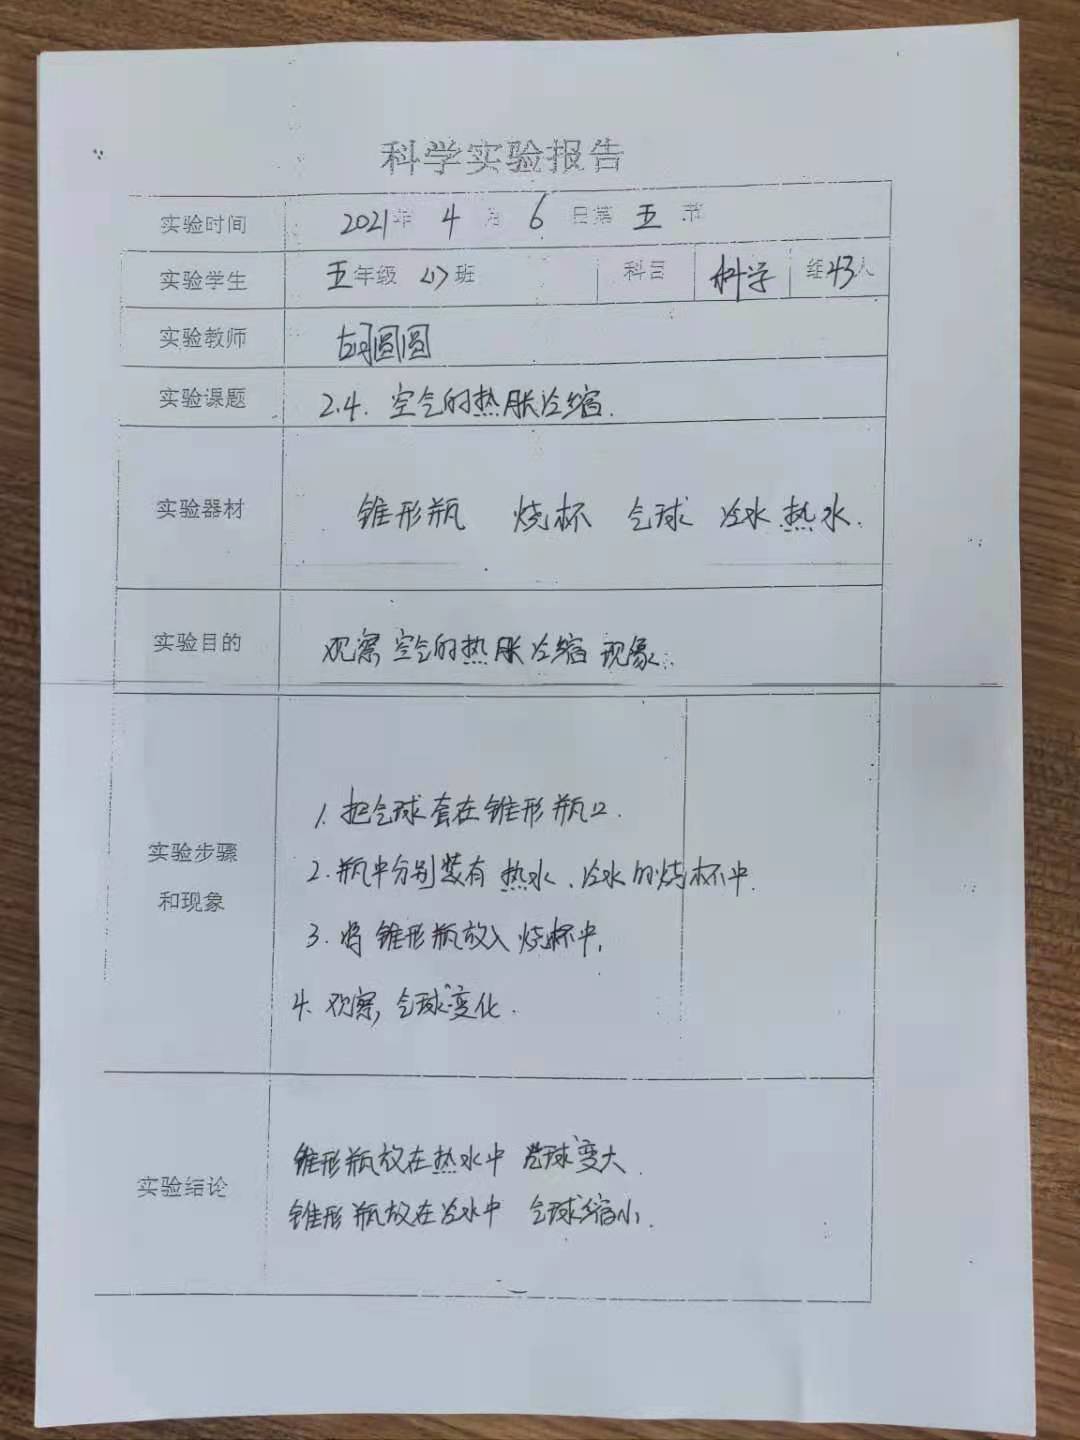 科学实验报告
实验时间 2021年 4 月 6 日第 五 节
实验学生 五年级 (1)班 科目 科学 组43人
实验教师 胡圆圆
实验课题 2.4. 空气的热胀冷缩.
实验器材 锥形瓶 烧杯 气球 冷水 热水.
实验目的 观察空气的热胀冷缩 现象.
实验步骤
和现象
1. 把气球套在锥形瓶口.
2. 瓶中分别装有热水、冷水的烧杯中.
3. 将锥形瓶放入烧杯中,
4. 观察, 气球变化.
实验结论
锥形瓶放在热水中 气球变大.
锥形瓶放在冷水中 气球缩小.